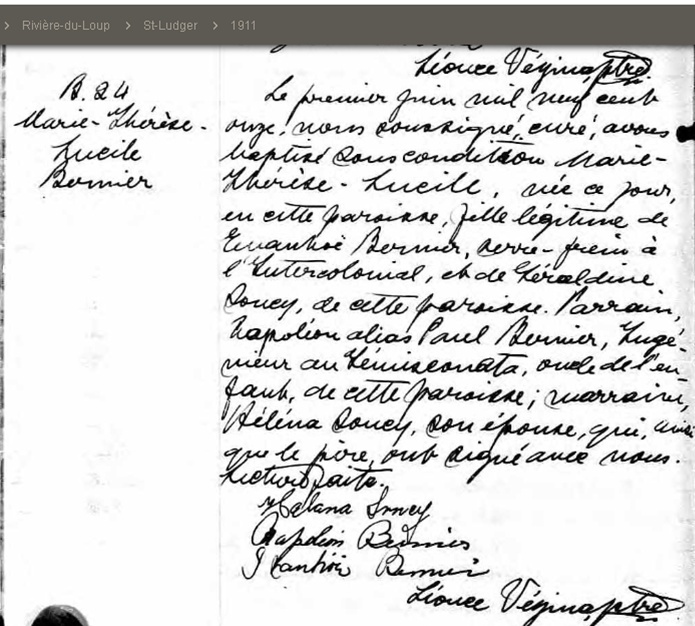 > Rivière-du-Loup > St-Ludger > 1911
Léonce Vézina, ptre
B. 24
Marie-Thérèse-
Lucile
Bernier
Le premier juin mil neuf cent
onze, nous soussigné, curé, avons
baptisé sous condition Marie-
Thérèse-Lucille, née ce jour,
en cette paroisse, fille légitime de
Ervanhoë Bernier, serre-frein à
l'Intercolonial, et de Géraldine
Soucy, de cette paroisse. Parrain,
Napoléon alias Paul Bernier, Ingé-
nieur au Témiscouata, oncle de l'en-
fant, de cette paroisse; marraine,
Héléna Soucy, son épouse, qui, ainsi
que le père, ont signé avec nous.
Lecture faite.
Helana Soucy
Napoléon Bernier
Bernier
Léonce Vézina, ptre